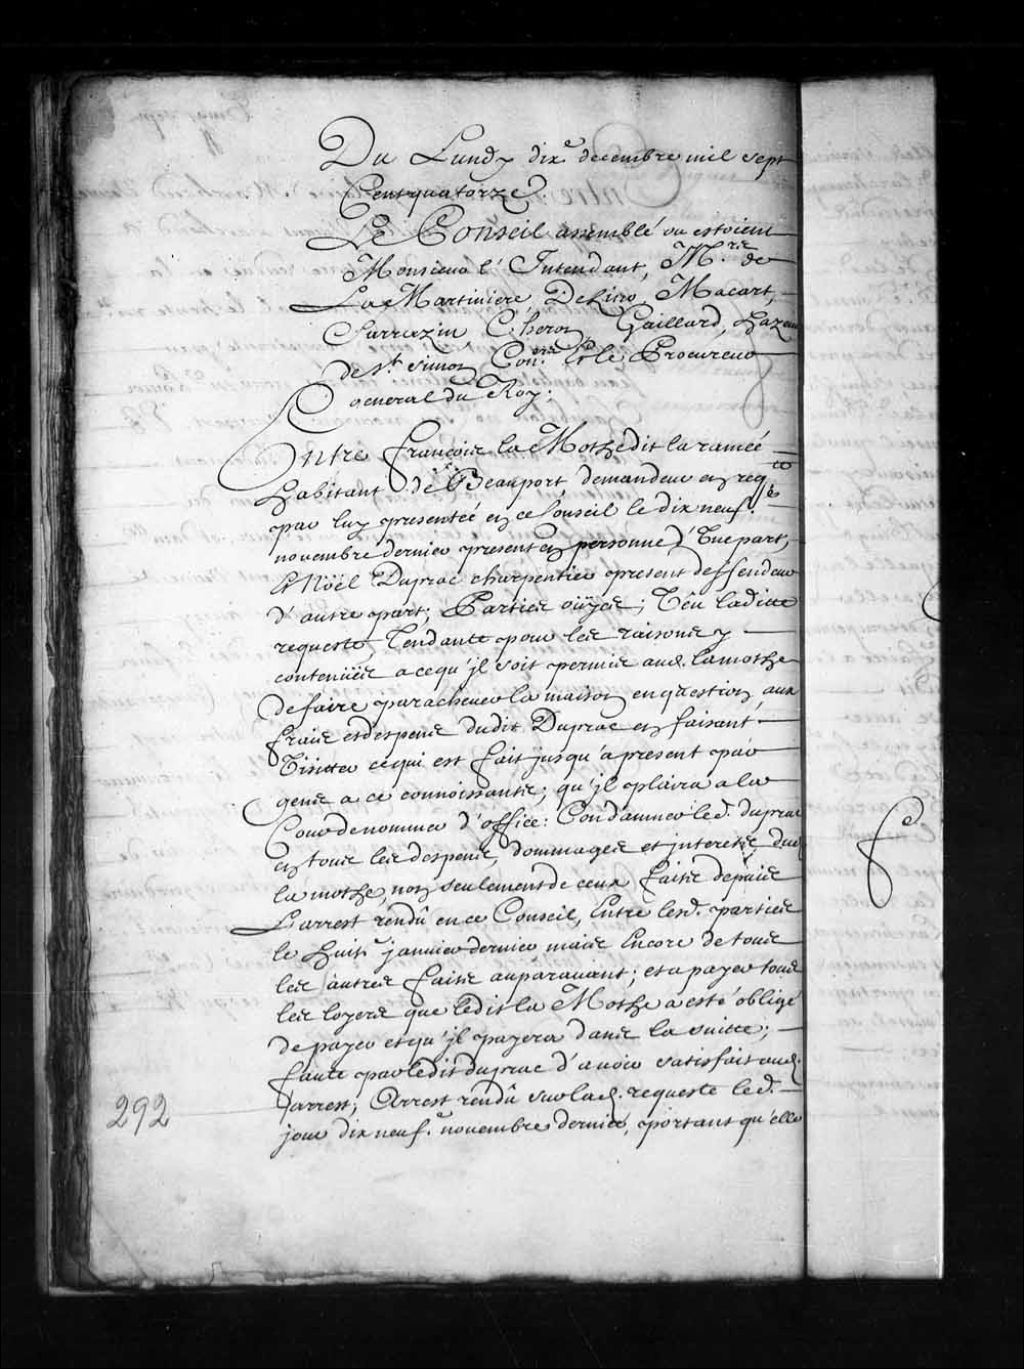 Du Lundy dix.e decembre mil sept
Cent quatorze
Le Conseil assemblé ou estoient
Monsieur l'Intendant, M.rs de
La Martiniere, Delino, Macart,
Sarrazin, Cheron, Gaillard, hazeur
de s.t simon Con.ers Et le Procureur
General du Roy;
Entre françois la Mothe dit la rameé
habitant de Beauport demandeur en req.te
par luy presenteé en ce Conseil le dix neuf.e
novembre dernier present en personne, d'Vne part,
Et Noël Duprac charpentier present deffendeur
d'autre part; Parties oüyes; Veu la ditte
requeste, Tendante pour les raisons y
contenües a ce qu'jl soit permis aud. lamothe
de faire parachever la maison en question, aux
frais et despens dudit Duprac en faisant
Visitter ce qui est fait jusqu'a present par
gens a ce connoissants; qu'jl plaira a la
Cour de nommer d'office: Condamner led. duprac
en tous les despens, dommages et jnterests dud
la mothe, non seulement de ceux faits depuis
L'arrest rendû en ce Conseil, Entre lesd. parties
le huit.e janvier dernier mais Encore de tous
les autres faits auparavant; et a payer tous
les loyers que ledit la Mothe a esté obligé
de payer et qu'jl payera dans la suitte;
faute par ledit duprac d'avoir satisfait aud.
arrest; Arrest rendû sur lad. requeste led.
jour dix neuf.e novembre dernier, portant qu'elle
292